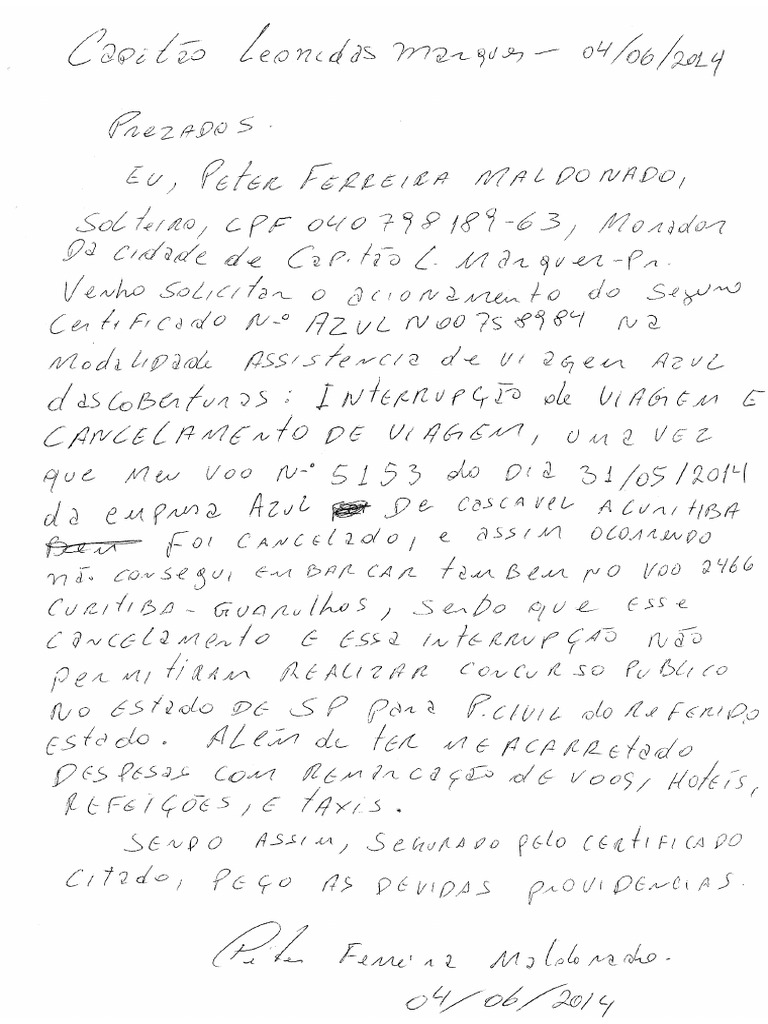 Capitão Leonidas Marques - 04/06/2014
PREZADOS.
EU, PETER FERREIRA MALDONADO,
Solteiro, CPF 040798189-63, Morador
Da cidade de Capitão L. Marques-Pr.
Venho solicitar o acionamento do seguro
Certificado Nº AZUL N00758984 na
Modalidade Assistencia de viagem AZUL
das coberturas: INTERRUPÇÃO de VIAGEM E
CANCELAMENTO DE VIAGEM, uma VEZ
que meu voo Nº 5153 do DIA 31/05/2014
da empresa AZUL De cascavel A CURITIBA
Foi cancelado, e assim ocorrendo
não consegui EMBARCAR tambem no voo 2466
CURITIBA - GUARULHOS, sendo que esse
cancelamento E ESSA INTERRUPÇÃO NÃO
permitiram REALIZAR CONCURSO PUBLICO
NO Estado DE SP para P.CIVIL do REFERIDO
Estado. ALÉM de TER ME ACARRETADO
DESPESAS COM REMARCAÇÃO de voos, Hoteis,
REFEIÇÕES, E TAXIS.
SENDO ASSIM, SEGURADO pelo CERTIFICADO
Citado, PEÇO AS DEVIDAS PROVIDENCIAS.
Peter Ferreira Maldonado.
04/06/2014